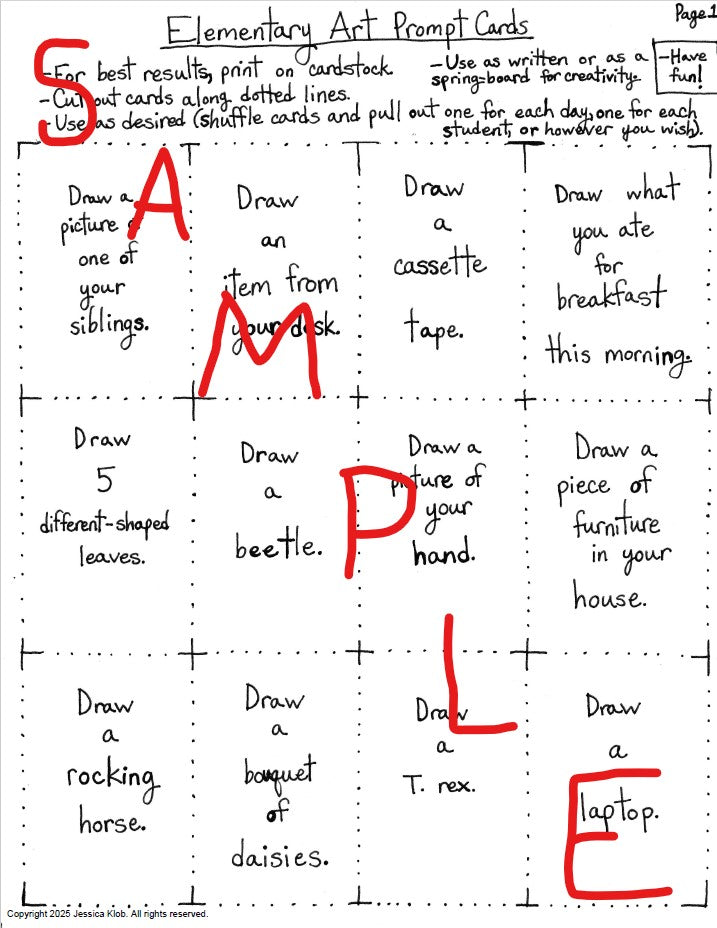 Elementary Art Prompt Cards
Page 1
-For best results, print on cardstock.
-Cut out cards along dotted lines.
-Use as desired (shuffle cards and pull out one for each day, one for each
student, or however you wish).
-Use as written or as a
spring-board for creativity.
-Have
fun!
Draw a
picture
one of
your
siblings.
Draw
an
item from
your desk.
Draw
a
cassette
tape.
Draw what
you ate
for
breakfast
this morning.
Draw
5
different-shaped
leaves.
Draw
a
beetle.
Draw a
picture of
your
hand.
Draw a
piece of
furniture
in your
house.
Draw
a
rocking
horse.
Draw
a
bouquet
of
daisies.
Draw
a
T. rex.
Draw
a
laptop.
SAMPLE
Copyright 2025 Jessica Klob. All rights reserved.